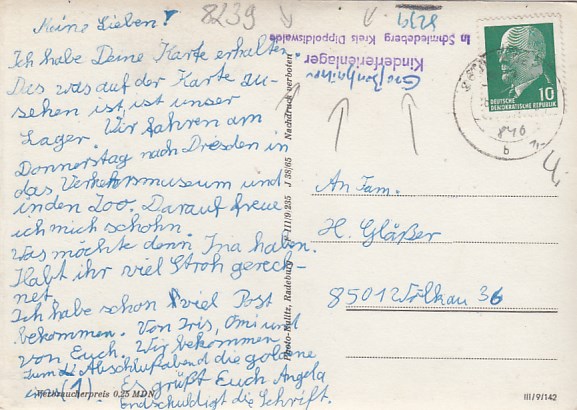 Meine Lieben!
Ich habe Deine Karte erhalten.
Das was auf der Karte zu-
sehen ist, ist unser
Lager. Wir fahren am
Donnerstag nach Dresden in
das Verkehrsmuseum und
in den Zoo. Darauf freue
ich mich schohn.
Was möchte denn Ina haben.
Habt ihr viel Stroh gerech-
net.
Ich habe schon viel Post
bekommen. Von Iris, Omi und
von Euch. Wir bekommen
zum die Abschlußabend die goldene
(1). Es grüßt Euch Angela
endschuldigt die Schrift.
Verbraucherpreis 0,25 MDN
8239
8239
in Schmiedeberg Kreis Dippoldiswalde
Kinderferienlager
Photo-Nulitz, Radeburg P III/9/235 J 38/65 Nachdruck verboten
10
DEUTSCHE
DEMOKRATISCHE REPUBLIK
b
An Fam.
H. Gläßer
8501 Wölkau 36
III/9/142